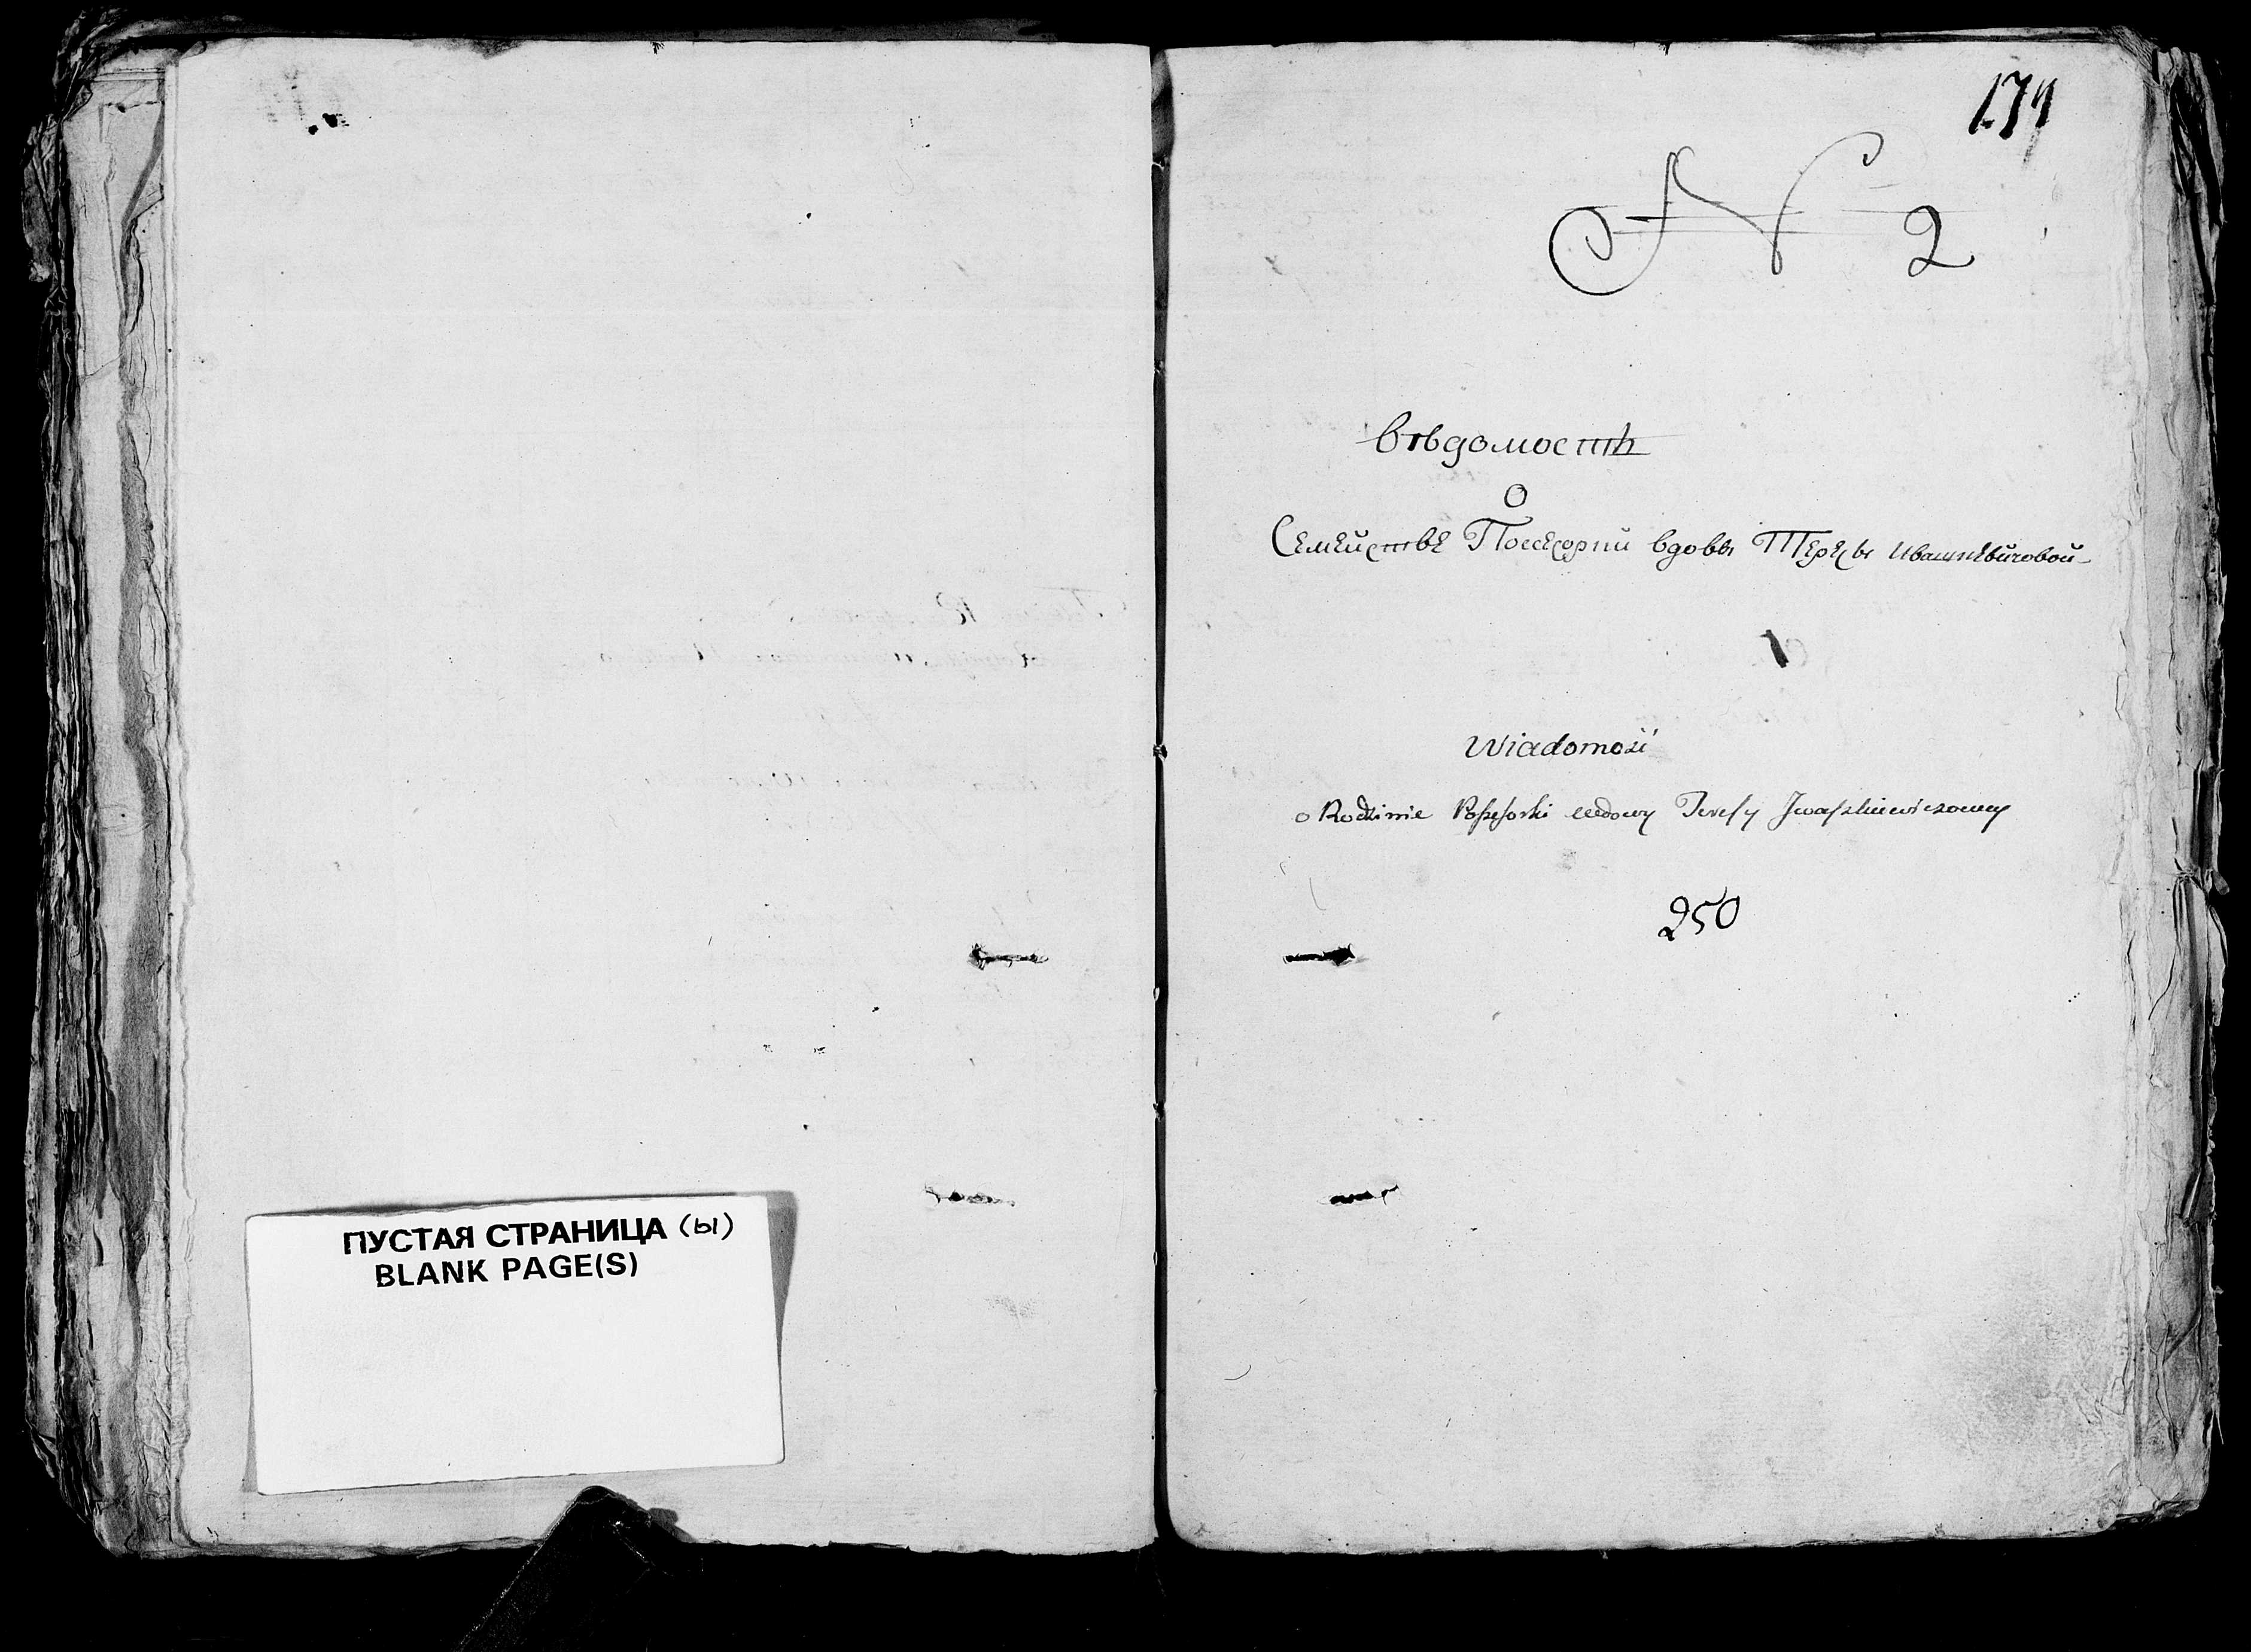 ПУСТАЯ СТРАНИЦА (ы)
BLANK PAGE(S)
N 2
Вѣдомость
О
Семействе Поссесории вдовы Терезы Ивашкевичовой
Wiadomość
o Rodzinie Possessorki wdowy Teresy Iwaszkiewiczowey
250